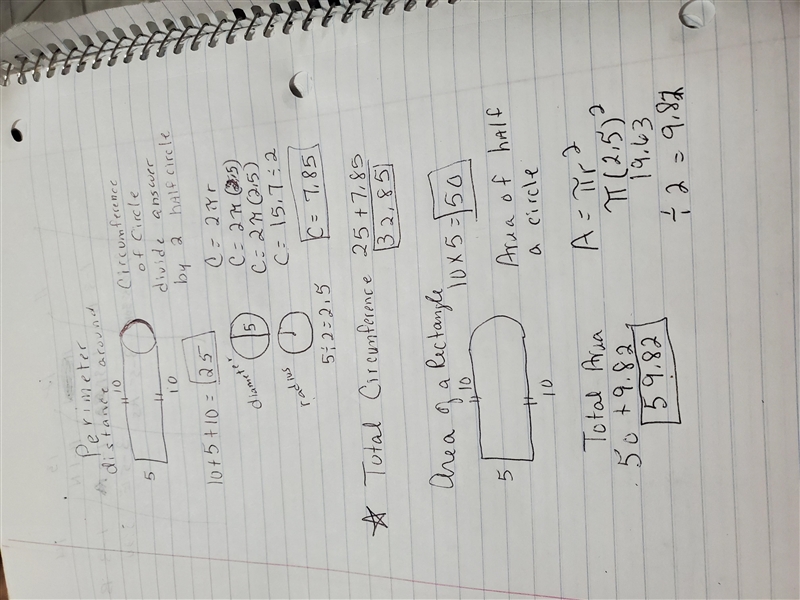 Perimeter
distance around
5
10
10
Circumference
of Circle
divide answer
by 2 half circle
10+5+10 = 25
diameter
5
radius
5÷2=2.5
C = 2πr
C = 2π(2.5)
C = 2π(2.5)
C = 15.7÷2
C = 7.85
☆ Total Circumference 25+7.85
32.85
Area of a Rectangle
10x5=50
5
10
10
Area of half
a circle
A = πr²
π(2.5)²
19.63
÷2 = 9.82
Total Area
50+9.82
59.82